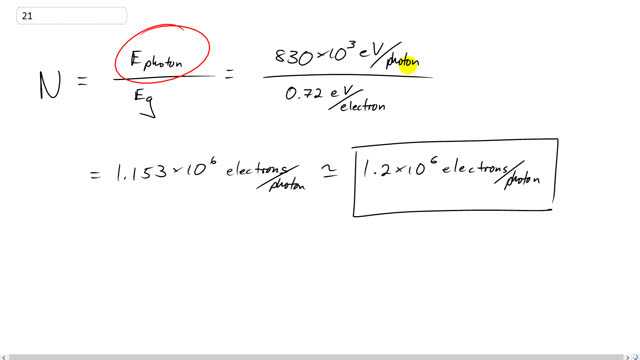 21
N = E photon / Eg = 830 × 10³ eV/photon / 0.72 eV/electron
= 1.153 × 10⁶ electrons/photon ≃ 1.2 × 10⁶ electrons/photon